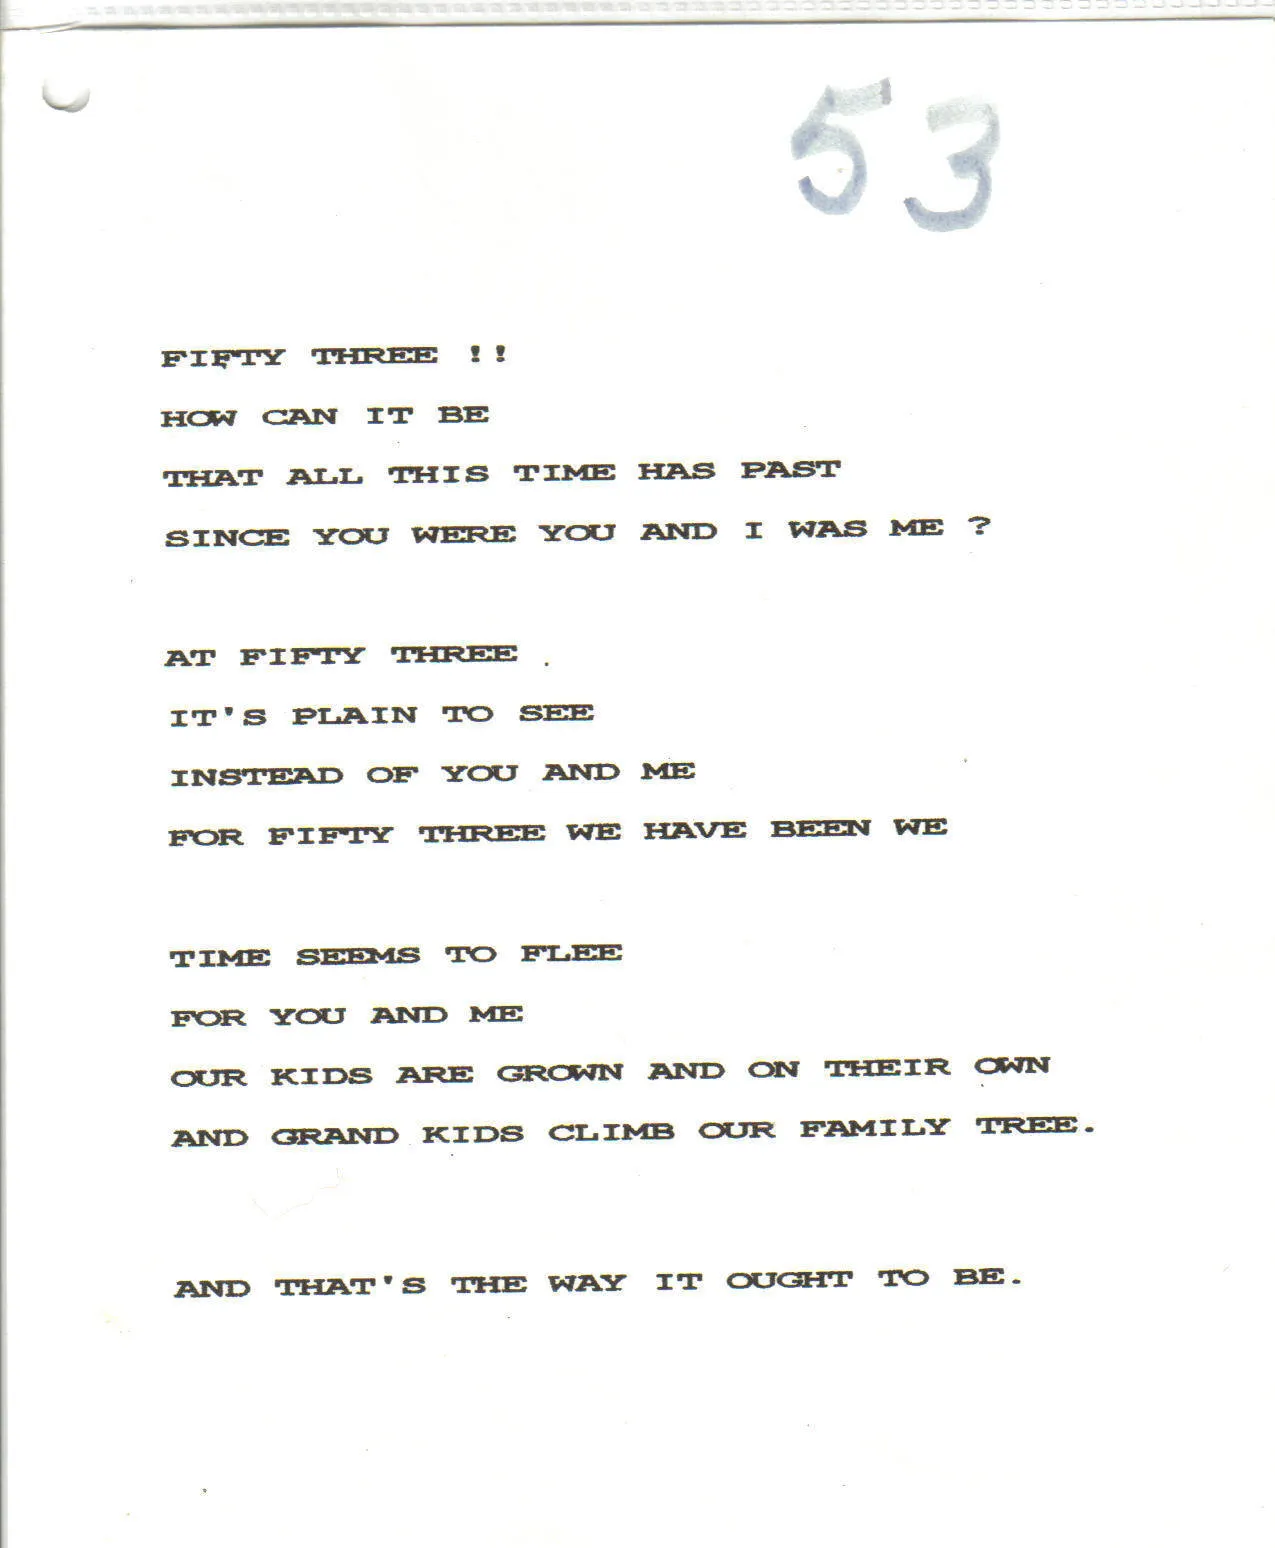 53
FIFTY THREE !!
HOW CAN IT BE
THAT ALL THIS TIME HAS PAST
SINCE YOU WERE YOU AND I WAS ME ?
AT FIFTY THREE
IT'S PLAIN TO SEE
INSTEAD OF YOU AND ME
FOR FIFTY THREE WE HAVE BEEN WE
TIME SEEMS TO FLEE
FOR YOU AND ME
OUR KIDS ARE GROWN AND ON THEIR OWN
AND GRAND KIDS CLIMB OUR FAMILY TREE.
AND THAT'S THE WAY IT OUGHT TO BE.